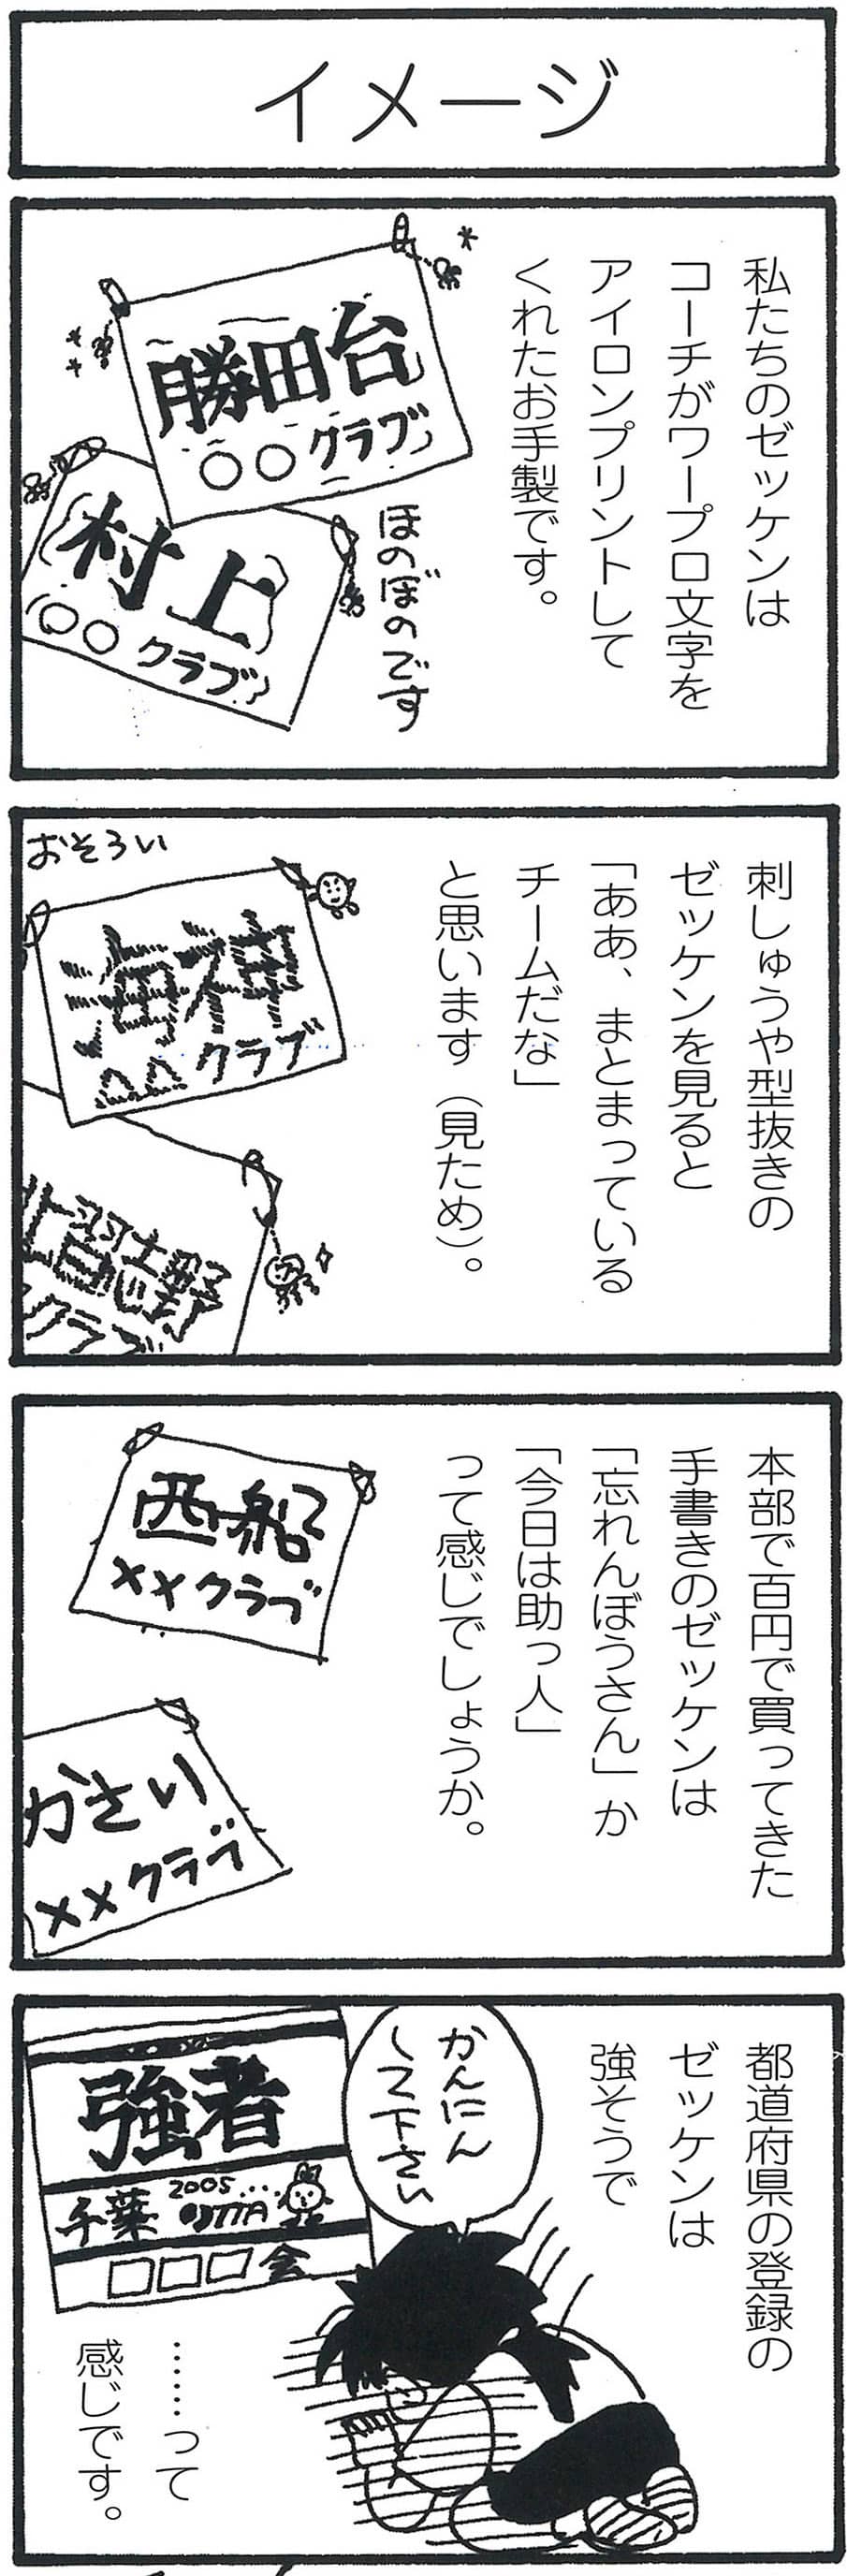 イメージ
私たちのゼッケンは
コーチがワープロ文字を
アイロンプリントして
くれたお手製です。
勝田台
○○クラブ
村上
○○クラブ
ほのぼのです
刺しゅうや型抜きの
ゼッケンを見ると
「ああ、まとまっている
チームだな」
と思います（見ため）。
おそろい
海神
△△クラブ
習志野
クラブ
本部で百円で買ってきた
手書きのゼッケンは
「忘れんぼうさん」か
「今日は助っ人」
って感じでしょうか。
西船
××クラブ
かさい
××クラブ
都道府県の登録の
ゼッケンは
強そうで
かんにん
して下さい
強者
千葉 2005....
□□□会
……って
感じです。